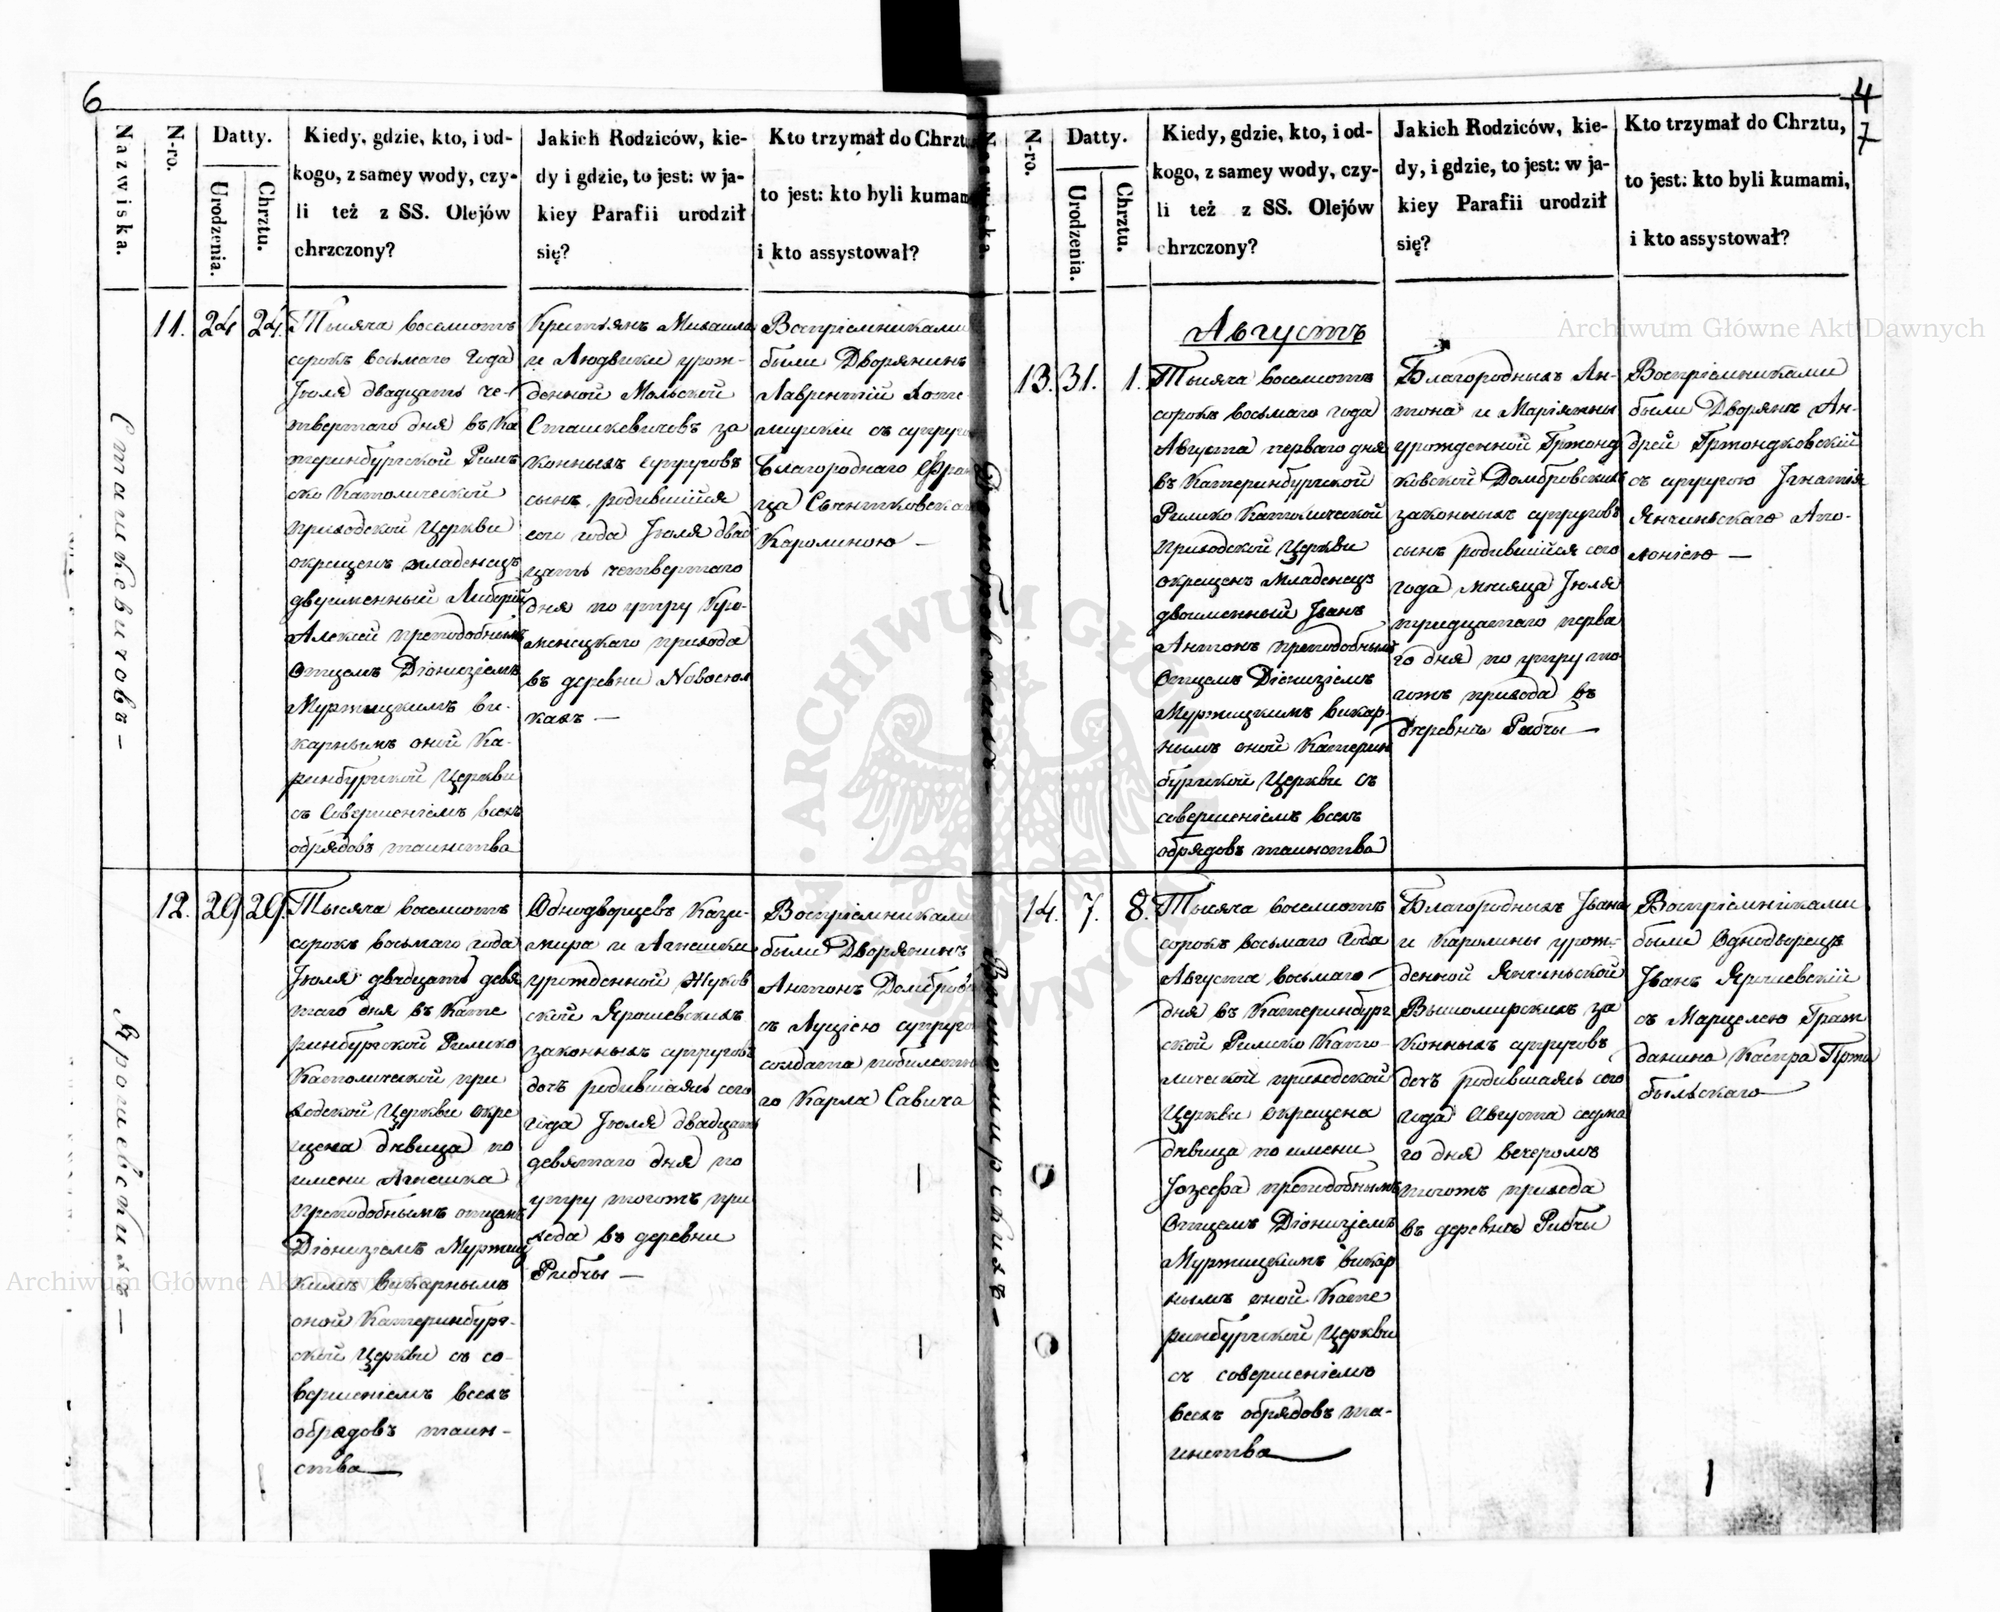 6
Nazwiska.
N-ro.
Datty.
Urodzenia.
Chrztu.
Kiedy, gdzie, kto, i od-
kogo, z samey wody, czy-
li też z SS. Olejów
chrzczony?
Jakich Rodziców, kie-
dy i gdzie, to jest: w ja-
kiey Parafii urodził
się?
Kto trzymał do Chrztu
to jest: kto byli kumam
i kto assystował?
Сташкевичовъ –
11.
24
24.
Тысяча восемсотъ
сорокъ восьмаго года
Іюля двадцать че-
твертаго дня въ Ка
теринбургской Римъ
ско Католической
приходской Церкви
окрещенъ младенецъ
двуименный Либорій
Алексій преподобнымъ
Отцемъ Діонизіемъ
Муржицкимъ ви-
карнымъ оной Ка-
ринбургской Церкви
съ Совершеніемъ всехъ
обрядовъ таинства
Крестьянъ Михаила
и Людвики урож-
денной Мольской
Сташкевичовъ за
конныхъ супруговъ
сынъ, родившійся
сего года Іюля двад
цать четвертаго
дня по утру Кре-
менецкаго прихода
въ деревни Новосюл
кахъ —
Воспріемниками
были Дворянинъ
Лаврентій
съ супруго
Благороднаго Фран
ца Свентковска
Каролиною —
Ярошевскихъ —
12.
29
29.
Тысяча восемсотъ
сорокъ восьмаго года
Іюля двадцать девя
таго дня въ Кате
ринбургской Римско
Католической при
ходской Церкви окре
щена дѣвица по
имени Агнешка
Преподобнымъ отцемъ
Діонизіемъ Муржиц
кимъ викарнымъ
оной Катеринбург-
ской Церкви съ со-
вершеніемъ всехъ
обрядовъ таин-
ства —
Однодворцевъ Кази-
мира и Агнешки
урожденной Жуков
ской Ярошевскихъ
законныхъ супруговъ
дочъ родившаясь сего
года Іюля двадцать
девятаго дня по
утру тогожъ при
хода въ деревни
Рибчы —
Воспріемниками
были Дворянинъ
Антонъ Домбров
съ Луціею супруго
солдата
го Карла Савича
4
7
N-ro.
Datty.
Urodzenia.
Chrztu.
Kiedy, gdzie, kto, i od-
kogo, z samey wody, czy-
li też z SS. Olejów
chrzczony?
Jakich Rodziców, kie-
dy, i gdzie, to jest: w ja-
kiey Parafii urodził
się?
Kto trzymał do Chrztu,
to jest: kto byli kumami,
i kto assystował?
Домбровскихъ –
Августъ
13.
31.
1.
Тысяча восемсотъ
сорокъ восьмаго года
Августа перваго дня
въ Катеринбургской
Римско Католической
приходской Церкви
окрещенъ младенецъ
двоименный Іванъ
Антонъ преподобнымъ
Отцемъ Діонизіемъ
Муржицкимъ викар-
нымъ оной Катерин
бургской Церкви съ
совершеніемъ всехъ
обрядовъ таинства
Благородныхъ Ан-
тона и Маріянны
урожденной Гржонд
ковской Домбровскихъ
законныхъ супруговъ
сынъ родившійся сего
года месяца Іюля
тридцатаго перва
го дня по утру то-
гожъ прихода въ
деревнѣ Рибчы —
Воспріемниками
были Дворянъ Ан-
дрей Гржондковскій
съ супругою Ігнатія
Янчинскаго Апо-
лоніею —
Вышомирскихъ –
14.
7.
8.
Тысяча восемсотъ
сорокъ восьмаго года
Августа восьмаго
дня въ Катеринбург
ской Римско Като-
лической приходской
Церкви окрещена
дѣвица по имени
Іозефа преподобнымъ
Отцемъ Діонизіемъ
Муржицкимъ викар
нымъ оной Кате
ринбургской Церкви
съ совершеніемъ
всехъ обрядовъ та-
инства
Благородныхъ Івана
и Каролины урож-
денной Янчиньской
Вышомирскихъ за
конныхъ супруговъ
дочъ родившаясь сего
года Августа седма
го дня вечеромъ
тогожъ прихода
въ деревнѣ Рибчи
Воспріемниками
были Однодворецъ
Іванъ Ярошевскій
съ Марцелею Граж
данина Каспра Пржи
быльскаго
Archiwum Główne Akt Dawnych
Archiwum Główne Akt Dawnych
ARCHIWUM GŁÓWNE AKT DAWNYCH